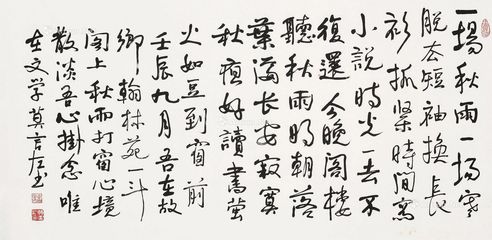 一場秋雨一場寒
脱衣短袖換長
衫抓緊時間寫
小説時光一去不
復還今晚閣樓
聽秋雨明朝落
葉滿長安寂寞
秋好讀書螢
火如豆到窗前
壬辰九月吾在故
鄉翰林苑一斗
閣上秋雨打窗心境
散淡吾心掛念唯
在文学莫言左书